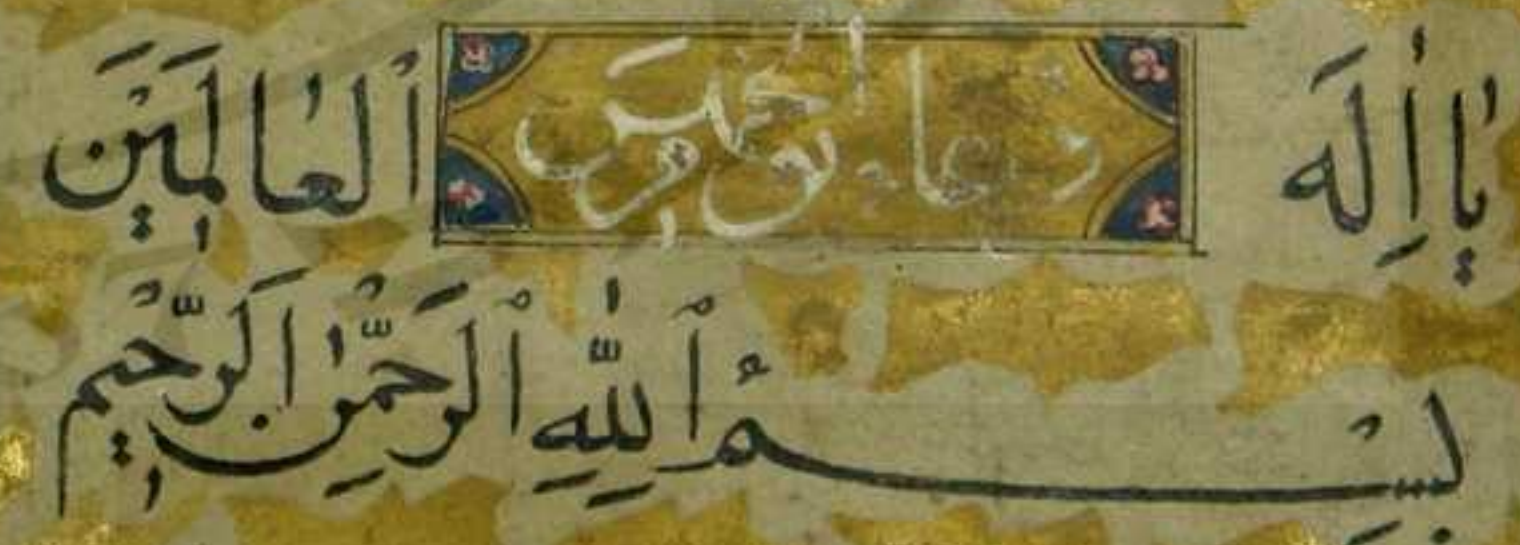 يَا إِلَهَ دعا يوم الخميس الْعَالَمِينَ
بِسْمِ اللَّهِ الرَّحْمَنِ الرَّحِيمِ